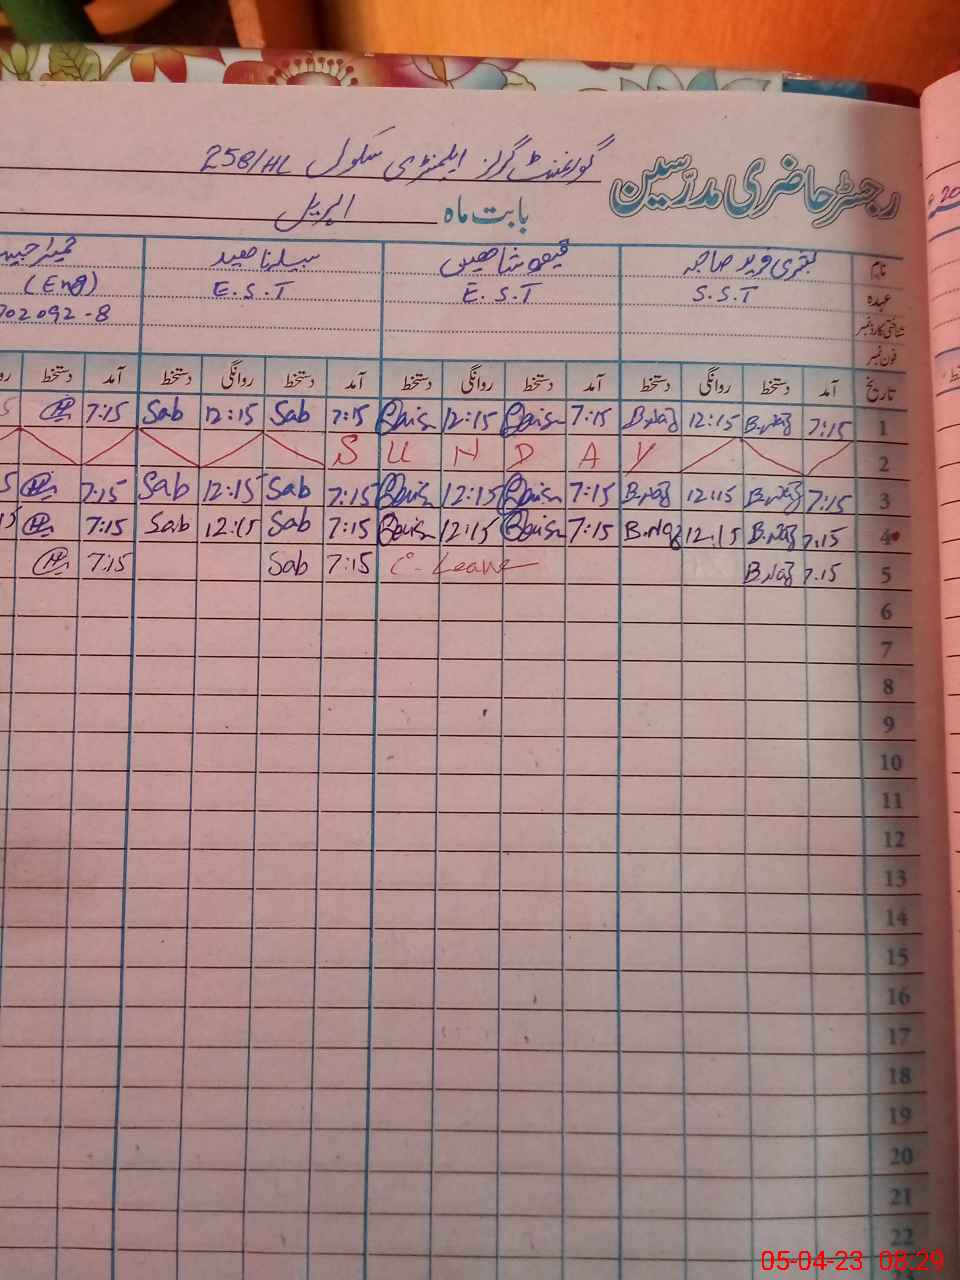 گورنمنٹ گرلز ایلمنٹری سکول 258/HL
رجسٹر حاضری مدرسین
بابت ماہ اپریل
نام
عہدہ S.S.T E.S.T E.S.T (Eng)
شناختی کارڈ نمبر 702092-8
فون نمبر
تاریخ آمد دستخط روانگی دستخط آمد دستخط روانگی دستخط آمد دستخط روانگی دستخط آمد دستخط
1 7:15 B.Naz 12:15 B.Naz 7:15 12:15 7:15 Sab 12:15 Sab 7:15
2 SUNDAY
3 7:15 B.Naz 12:15 B.Naz 7:15 12:15 7:15 Sab 12:15 Sab 7:15
4 7:15 B.Naz 12:15 B.Naz 7:15 12:15 7:15 Sab 12:15 Sab 7:15
5 7:15 B.Naz C. Leave 7:15 Sab 7:15
6
7
8
9
10
11
12
13
14
15
16
17
18
19
20
21
22
05-04-23 08:29